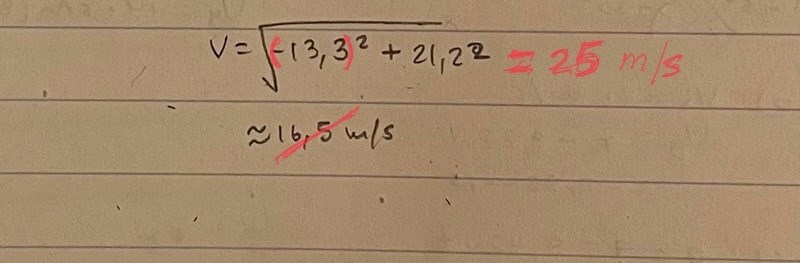 v = √(-13,3)² + 21,2² = 25 m/s
≈ 16,5 m/s